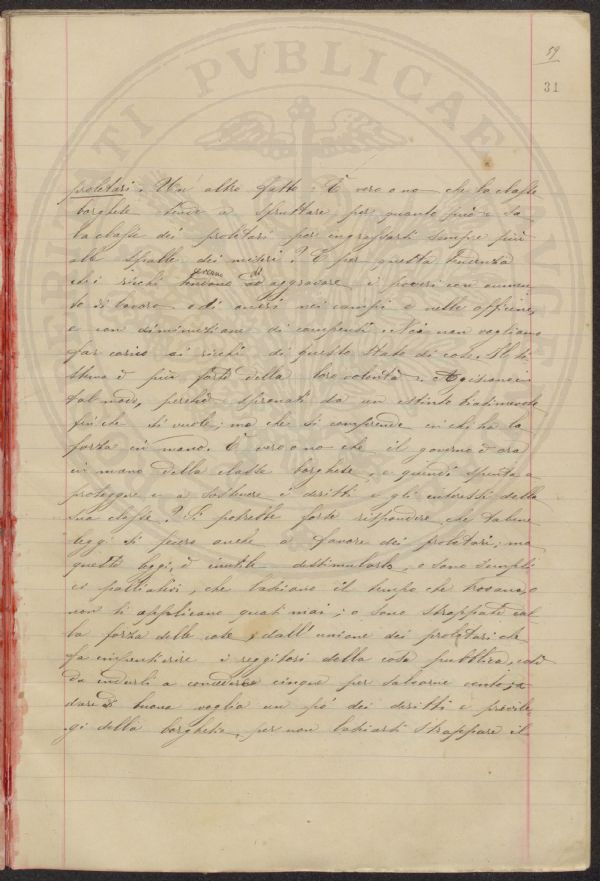 59
31
PVBLICAE
proletari. Un altro fatto: È vero o no che la classe
borghese tende a sfruttare per quanto può e sa
la classe dei proletari per ingrassarsi sempre più
alle spalle dei miseri? È per questa tendenza
che i ricchi cercano di aggravare i poveri con aumen
to di lavoro e di nei campi e nelle officine,
e con diminuzione di compensi. Noi non vogliamo
far carico ai ricchi di questo stato di cose. Il si
stema è più forte della loro volontà. Agiscono in
tal modo, perchè spronati da un istinto biasimevole
finché si vuole; ma che si comprende in chi ha la
forza in mano. È vero o no che il governo è ora
in mano della classe borghese, e quindi a
proteggere e a sostenere i diritti e gli interessi della
sua classe? Si potrebbe forse rispondere che talune
leggi si fecero anche a favore dei proletari; ma
queste leggi, è inutile dissimularlo, o sono sempli
ci palliativi, che lasciano il tempo che trovano, o
non si applicano quasi mai; o sono strappate dal
la forza delle cose, dall'unione dei proletari che
fa impensierire i reggitori della cosa pubblica, così
da indurli a concedere cinque per salvarne cento; a
dare di buona voglia un pó dei diritti e privile
gi della borghesia, per non lasciarsi strappare il